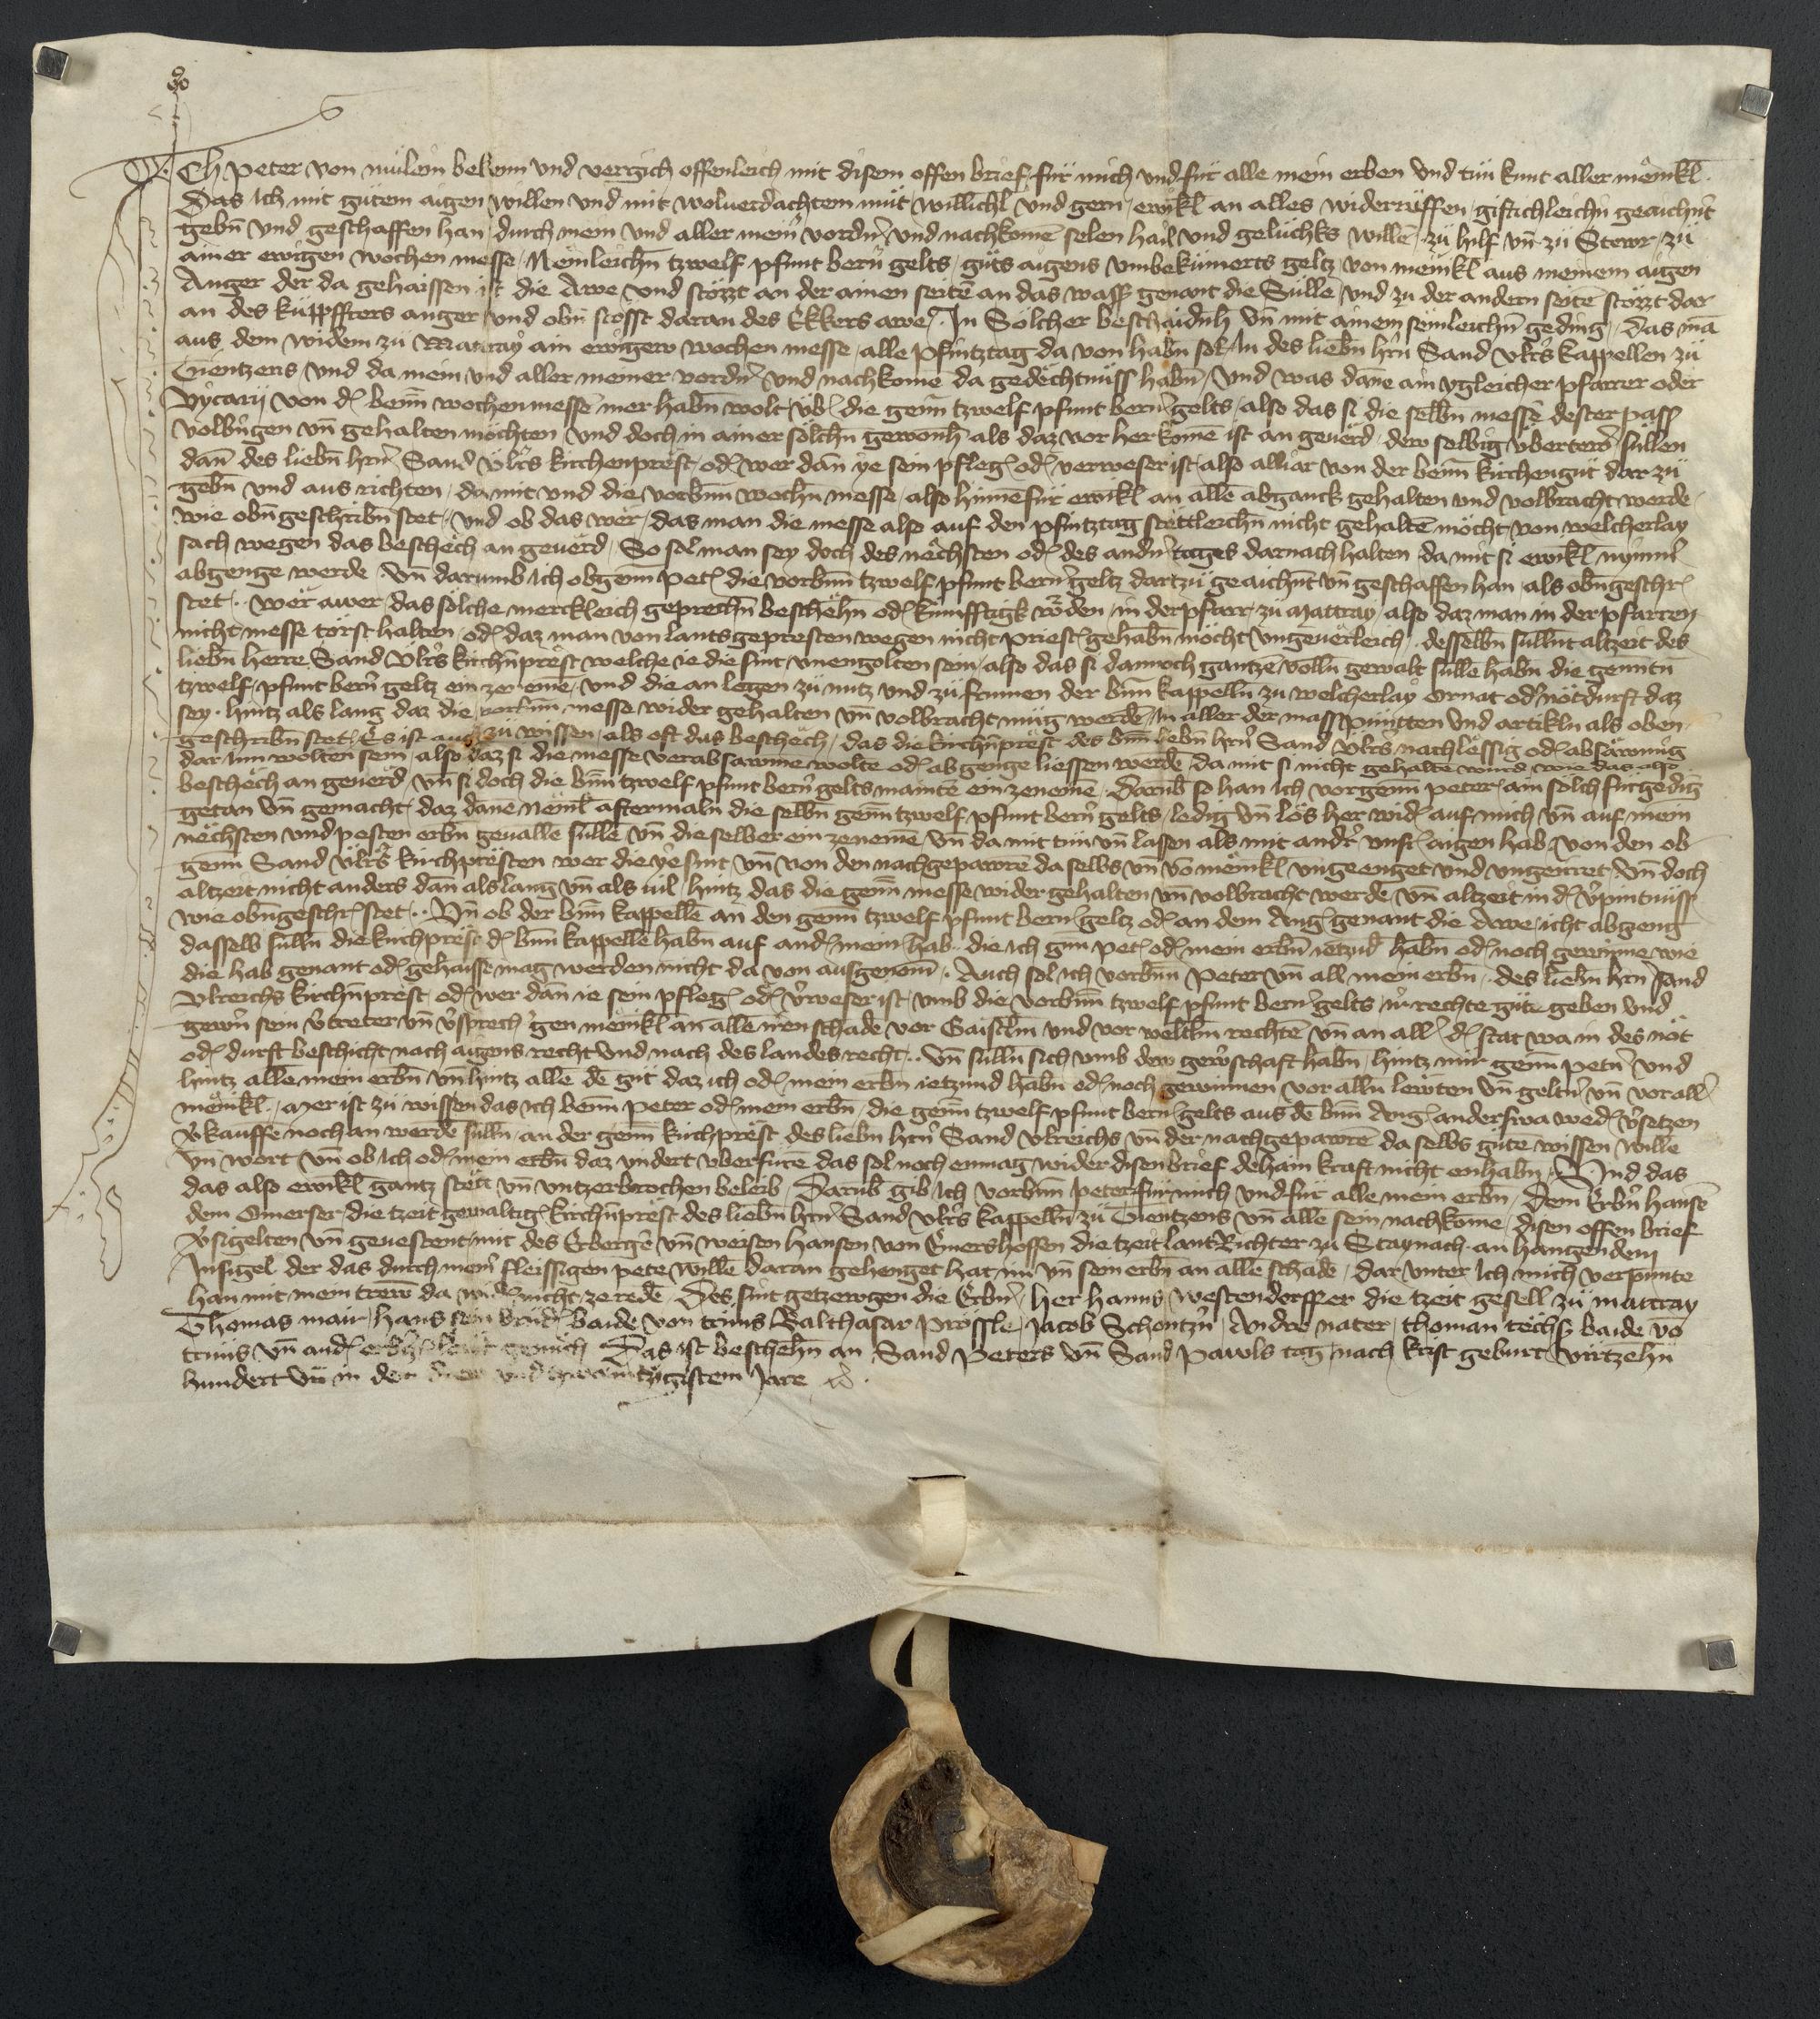 Ich Peter von mülein bekenn und vergich offenleich mit disem offen brief für mich und für alle mein erben und tün kunt aller mënikl̄.
Das ich mit gütem aigen willen und mit wolverdachtem müt willichl̄ und gern ewikl̄ an alles widerrüffen giftichleichn̄ geaichnt
gebn̄ und geschaffen han durch mein und aller mein̄ vordn̄ und nachkomē selen hail und gelüchks willē zü hilf vn̄ zü Stewr zü
ainer ewigen wochen messe Nemleichn̄ tzwelf pfunt bern̄ gelts güts aigens vmbekümerts geltz von menikl̄ aus meinem aigen
Anger der da gehaissen ist die Awe und stözzt an der ainen seitē an das wass̄ genant die Süllē und zu der andern seitē stözzt dar
an des küppffters anger und obn̄ stösst daran des Ekkers awe. In Sölcher beschaidnh̄ vn̄ mit ainem semleichn̄ geding das mā
aus dem widem zü Mattray ain ewigew wochen messe alle pfintztag da von habn̄ sol in des liebn̄ hrn̄ Sand vlr̄s kappellen zü
Tientzens und da mein und aller meiner vordn̄ und nachkomē da gedëchtnüss habn̄ und was danne ain ygleicher pfarrer oder
vycarij von d̄ benn̄ wochenmesse mer habn̄ wolt üb̄ die genn̄ tzwelf pfunt bern̄ gelts also das si die selbn̄ messe dester pass
volbringen vn̄ gehalten möchten und doch in ainer sölchn̄ gewonh̄ als daz vor her komē ist an gevërd dew selbig vbertewr̄ süllen
dan̄ des liebn̄ hrn̄ Sand vlr̄s kirchenprest od̄ wer dan̄ ye sein pfleḡ od̄ verweser ist also alliar von der benn̄ kirchengut dar zü
gebn̄ und aus richten da mit und die vorbnn̄ wochn̄ messe also hinnefür ewikl̄ an allē abganck gehalten und volbracht werde
wie obn̄ geschribn̄ stet und ob das wer das man die messe also auf den pfintztag stettleichn̄ nicht gehaltē möcht von welcherlay
sach wegen das beschëch an gevërd So sol man sey doch des nëchsten od̄ des andn̄ tages darnach halten da mit si ewikl̄ nymmer
abgenge werde Vn̄ darumb ich obgenn̄ Pet̄ die vorbnn̄ tzwelf pfunt bern̄ geltz dartzü geaichnt vn̄ geschaffen han als obn̄geschr̄
stet. Wer awer das sölche merckleich geprechn̄ beschëhn̄ od̄ kümfftigk wrden in der pfarr zü Mattray also daz man in der pfarren
nicht messe törst halten od̄ daz man von lants gepresten wegen nicht priest̄ gehabn̄ möcht ungeverleich desselbn̄ süllnt altzeit des
liebn̄ herre Sand vlr̄s kirchn̄prëst welche ie die sint unengolten sein also das si dannoch gantzē volln̄ gewalt süllē habn̄ die genntn̄
tzwelf pfunt bern̄ geltz ein zenemē und die an legen zü nutz und zü frumen der bnn̄ kappelln̄ zu welcherlay ornat od̄ nötdurft daz
sey hintz als lang daz die vorbnn̄ messe wider gehalten vn̄ volbracht müg werdē in aller der mass püntten und artikln̄ als oben
geschribn̄ stet Es ist zü wissen als oft das beschëch das die kirchn̄prëst des bnn̄ liebn̄ hrn̄ Sand vlr̄s nachlëssig od̄ absäwmig
dar inn wolten sein also daz si die messe verabsawme wolte od̄ ab genge liessen werdē da mit si nicht gehaltē würd wie das also
beschëch an gevërd vn̄ si doch die bnn̄ tzwelf pfunt bern̄ gelts maintē ein zenemē Darūb so han ich vorgenn̄ peter ain sölch fürgedinḡ
getan vn̄ gemacht daz danne nëml̄ aftermaln̄ die selbn̄ genn̄ tzwelf pfunt bern̄ gelts ledig vn̄ lös her wid̄ auf mich vn̄ auf mein
nëchsten und pesten erbn̄ gevalle süllē vn̄ die selber ein zenemē vn̄ da mit tün vn̄ lassen als mit andr̄ uns̄ aigen hab von den ob
genn̄ Sand vlr̄s kirchprësten wer die ye sint vn̄ von den nachgepawrē da selbs vn̄ vō mënikl̄ ungeenget und ungeirret Vn̄ doch
altzeit nicht anders dan̄ als lang vn̄ als vil hintz das die genn̄ messe wider gehalten vn̄ volbracht werde vn̄ altzeit in d̄ v̄pintnüss
wie obn̄geschr̄ stet. Vn̄ ob der bnn̄ kappellē an den genn̄ tzwelf pfunt bern̄ geltz od̄ an dem Anḡ genant die Awe icht abgieng
dasselb sülln̄ die kirchprëst d̄ bnn̄ kappellē habn̄ auf and̄ mein hab die ich gnn̄ pet̄ od̄ mein erbn̄ ietzud̄ habn̄ od̄ noch gewinne wie
die hab genant od̄ gehaisse mag werden nicht da von ausgenom̄. Auch sol ich vorbnn̄ Peter vn̄ all mein erbn̄ des liebn̄ hrn̄ Sand
Vlreichs kirchn̄prëst od̄ wer dan̄ ie sein pfleḡ od̄ v̄weser ist umb die vorbnn̄ tzwelf pfunt bern̄ gelts ir̄ rechte güte geben und
gewn̄ sein v̄treter vn̄ v̄sprech̄ gen mënikl̄ an allē iren schadē vor Gaistl̄m und vor weltl̄m rechtē vn̄ an all̄ d̄ stat wa in des nöt
od̄ durft beschicht nach aigens recht und nach des landes recht. Vn̄ sülln̄ sich umb dew gewr̄schaft habn̄ hintz mir genn̄ petn̄ und
hintz allē mein erbn̄ vn̄ hintz allē dē güt daz ich od̄ mein erbn̄ ietzund habn̄ od̄ noch gewinnen vor alln̄ lewten vn̄ geltn̄ vn̄ vor all̄
mënikl̄. Mer ist zü wissen das ich benn̄ Peter od̄ mein erbn̄ die genn̄ tzwelf pfunt bern̄ gelts aus dē bnn̄ Anḡ anderswa wed̄ v̄setzen
v̄kauffe noch an werdē sülln̄ an der genn̄ kirchprëst des liebn̄ hrn̄ Sand vlreichs vn̄ der nachgepawrē da selbs güte wissen willē
vn̄ wort vn̄ ob ich od̄ mein erbn̄ daz yndert uberfürē das sol noch enmag wider disen brief dehain kraft nicht enhabn̄. Und das
das also ewikl̄ gantz stët vn̄ untzerbrochen beleib Darūb gib ich vorbnn̄ peter für mich und für alle mein erbn̄ dem Erbn̄ hansē
dem Omerser die tzeit gewaltiḡ kirchn̄prëst des liebn̄ hrn̄ Sand vlr̄s kappelln̄ zü Tientzens vn̄ allē sein nachkomē disen offen brief
v̄sigelten vn̄ gevestent mit des Erbergē vn̄ weisen hansen von Emershoffen die tzeit lantRichter zü Staynach an hangendem
Insigel der das durch mein̄ fleissigen pete willē daran gehenget hat im vn̄ sein erbn̄ an allē schadē dar unter ich mich verpinte
han mit mein trewn̄ da wider nicht ze redē. Des sint getzewgen die Erbn̄ her hanns westendorffer die tzeit gesell zü mattray
Thomas mair hans sein brüd̄ baide von trins Balthasar prössle Jacob Schontzn̄ Andre nater thoman tëchs baide vō
trins vn̄ and̄ erbr̄ lewt genüch Das ist beschehn̄ an Sand Peters vn̄ Sand pawls tag nach krist geburt virtzehn̄
hundert vn̄ in dem drew und tzwaintzigistem Jare